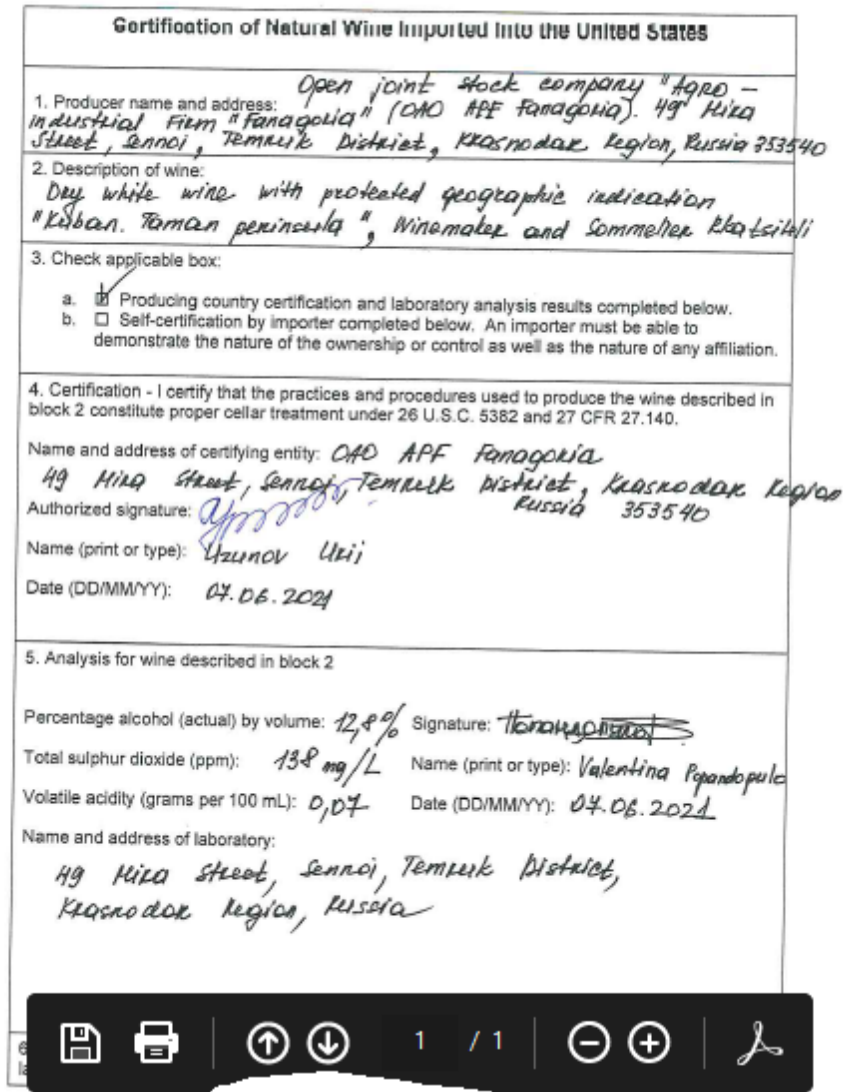 Certification of Natural Wine Imported Into the United States
Open joint stock company "Agro –
1. Producer name and address:
industrial Firm "Fanagoria" (OAO APF Fanagoria). 49 Mira
Street, Sennoi, Temruk District, Krasnodar Region, Russia 353540
2. Description of wine:
Dry white wine with protected geographic indication
"Kuban. Taman peninsula", Winemaker and Sommelier Rkatsiteli
3. Check applicable box:
a. Producing country certification and laboratory analysis results completed below.
b. Self-certification by importer completed below. An importer must be able to
demonstrate the nature of the ownership or control as well as the nature of any affiliation.
4. Certification - I certify that the practices and procedures used to produce the wine described in
block 2 constitute proper cellar treatment under 26 U.S.C. 5382 and 27 CFR 27.140.
Name and address of certifying entity: OAO APF Fanagoria
49 Mira Street, Sennoi, Temruk District, Krasnodar Region
Russia 353540
Authorized signature:
Name (print or type): Uzunov Urij
Date (DD/MM/YY): 07.06.2021
5. Analysis for wine described in block 2
Percentage alcohol (actual) by volume: 12,8% Signature:
Total sulphur dioxide (ppm): 138 mg/L Name (print or type): Valentina Popandopulo
Volatile acidity (grams per 100 mL): 0,07 Date (DD/MM/YY): 07.06.2021
Name and address of laboratory:
49 Mira Street, Sennoi, Temruk District,
Krasnodar Region, Russia
1 / 1